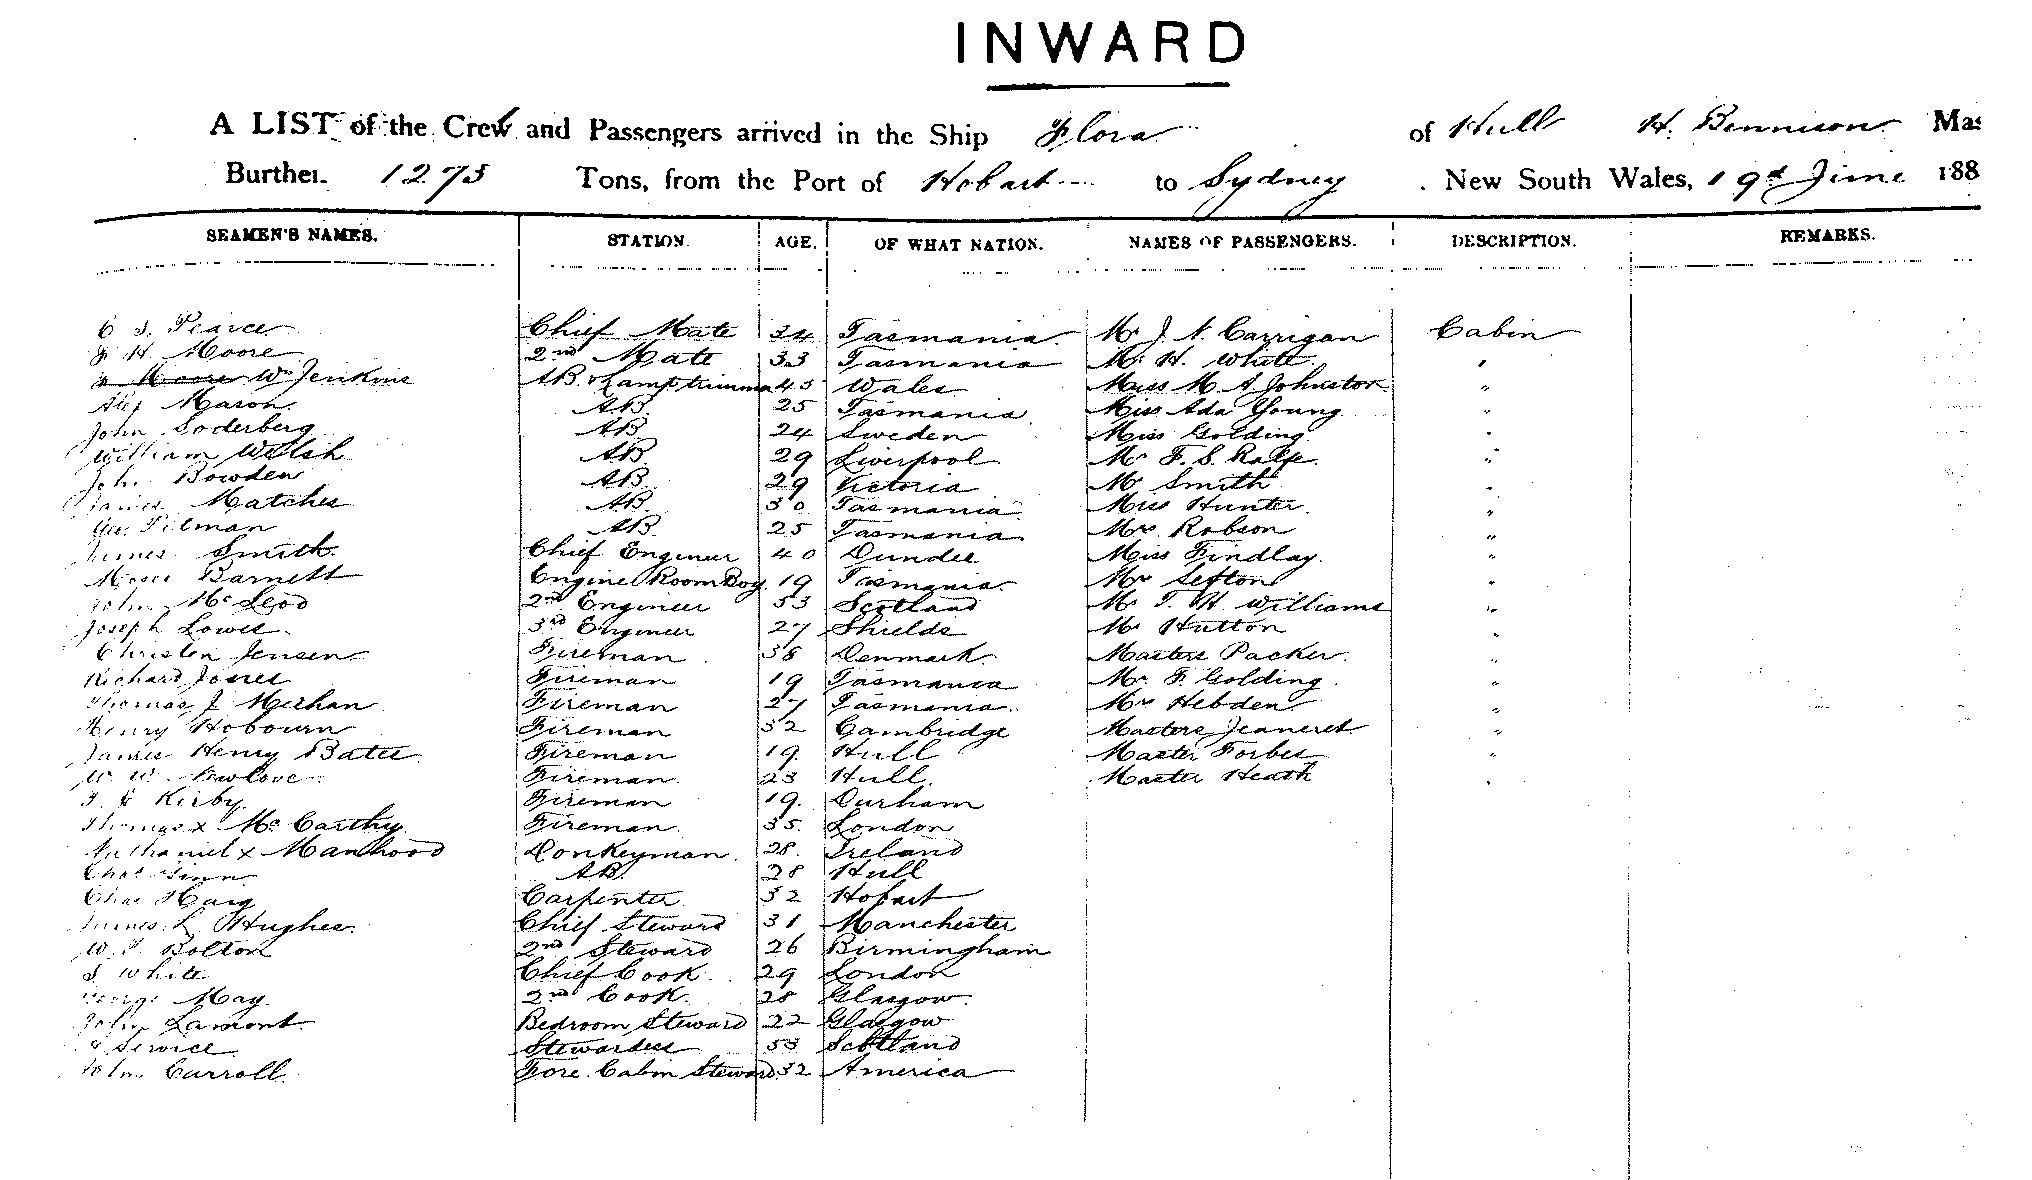 INWARD
A LIST of the Crew and Passengers arrived in the Ship Flora of Hull H. Bennison Mas
Burthen 1273 Tons, from the Port of Hobart to Sydney New South Wales, 19th June 188
SEAMEN'S NAMES. STATION. AGE. OF WHAT NATION. NAMES OF PASSENGERS. DESCRIPTION. REMARKS.
Pearce Chief Mate 34 Tasmania Mr J. N. Carrigan Cabin
H. Moore 2nd Mate 33 Tasmania Mr H. White "
Moore Wm Jenkins AB & Lamptrimmer 45 Wales Miss M. A. Johnston "
Alex Mason AB 25 Tasmania Miss Ada Young "
John Soderberg AB 24 Sweden Miss Golding "
William Welsh AB 29 Liverpool Mr F. S. Ralfe "
John Bowden AB 29 Victoria Mr Smith "
James Matches AB 30 Tasmania Miss Hunter "
Geo. Pitman AB 25 Tasmania Mrs Robson "
James Smith Chief Engineer 40 Dundee Miss Findlay "
Moses Barnett Engine Room Boy 19 Tasmania Mr Sefton "
John McLeod 2nd Engineer 53 Scotland Mr T. H. Williams "
Joseph Lowes 3rd Engineer 27 Shields Mr Hutton "
Christen Jensen Fireman 38 Denmark Masters Packer "
Richard Jones Fireman 19 Tasmania Mr F. Golding "
Thomas J Meehan Fireman 27 Tasmania Mrs Hebden "
Henry Hobourn Fireman 32 Cambridge Masters Jeanneret "
James Henry Bates Fireman 19 Hull Master Forbes "
W. W. Newlove Fireman 23 Hull Master Heath "
Kirby Fireman 19 Durham
Thomas x McCarthy Fireman 35 London
Nathaniel x Manhood Donkeyman 28 Ireland
Chas Finn AB 28 Hull
Chas Haig Carpenter 32 Hobart
James L Hughes Chief Steward 31 Manchester
W. J. Bolton 2nd Steward 26 Birmingham
S White Chief Cook 29 London
George May 2nd Cook 28 Glasgow
John Lamont Bedroom Steward 22 Glasgow
Service Stewardess 53 Scotland
John Carroll Fore Cabin Steward 32 America